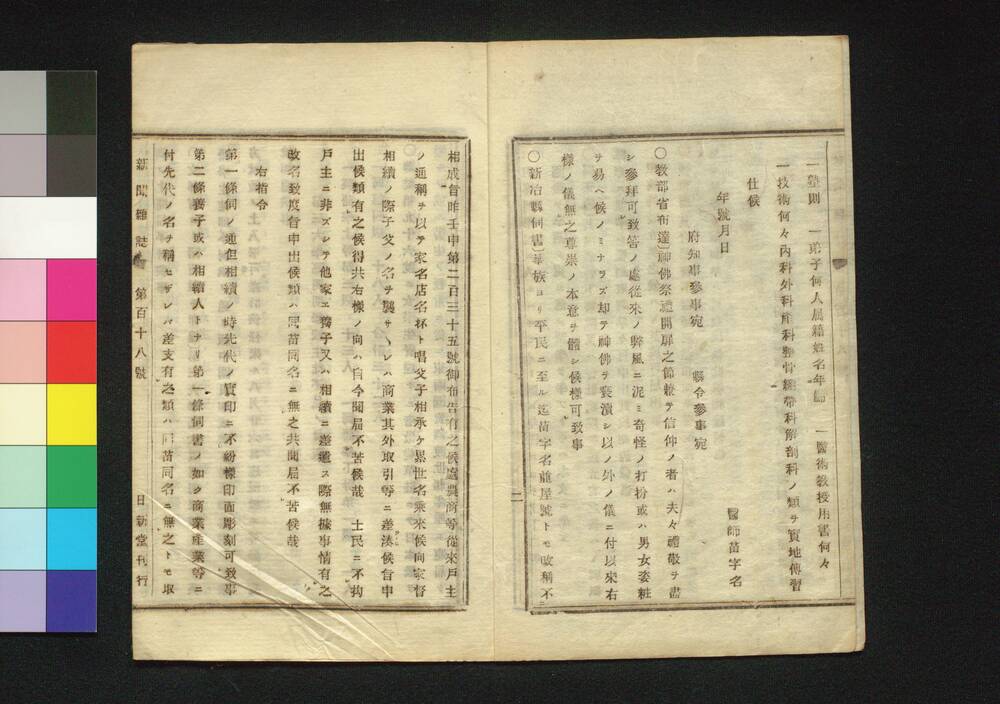 一塾則　一弟子何人屬籍姓名年齡　一醫術教授用書何々
一技術何々內科外科眼科整骨繃帶科解剖科ノ類ヲ實地傳習
仕候
年號月日　醫師苗字名
府知事參事宛　縣令參事宛
〇教部省布達〕神佛祭禮開扉之節兼テ信仰ノ者ハ夫々禮敬ヲ盡
シ參拜可致筈ノ處從來ノ弊風ニ泥ミ奇怪ノ打扮或ハ男女委粧
ヲ易ヘ候ノミナラズ却テ神佛ヲ褻瀆シ以ノ外ノ儀ニ付以來右
樣ノ儀無之尊崇ノ本意ヲ體シ候樣可致事
〇新治縣伺書〕華族ヨリ平民ニ至ル迄苗字名並屋號トモ改稱不
二
相成旨昨壬申第二百三十五號御布告有之候處農商等從來戶主
ノ通稱ヲ以テ家名店名抔ト唱父子相承ケ累世名乘來候向家督
相續ノ際子父ノ名ヲ襲サヽレハ商業其外取引等ニ差湊候旨申
出候類有之候得共右樣ノ向ハ自今聞屆不苦候哉　士民ニ不拘
戶主ニ非ズシテ他家エ養子又ハ相續ニ差遣ス際無據事情有之
改名致度旨申出候類ハ同苗同名ニ無之共聞屆不苦候哉
右指令
第一條伺ノ通但相續ノ時先代ノ實印ニ不紛樣印面彫刻可致事
第二條養子或ハ相續人トナリ第一條伺書ノ如ク商業產業等ニ
付先代ノ名ヲ稱セザレバ差支有之類ハ同苗同名ニ無之トモ取
新聞雜誌　第百十八號　日新堂刊行